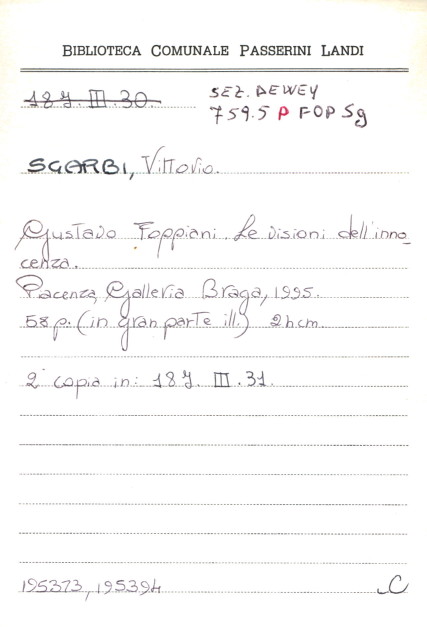 BIBLIOTECA COMUNALE PASSERINI LANDI
18Y. III. 30
SEZ. DEWEY
759.5 P FOP Sg
SGARBI, Vittorio.
Gustavo Foppiani. Le visioni dell'inno-
cenza.
Piacenza, Galleria Braga, 1995.
58 p. (in gran parte ill.) 24 cm.
2ª copia in: 18Y. III. 31.
195373, 195394
C